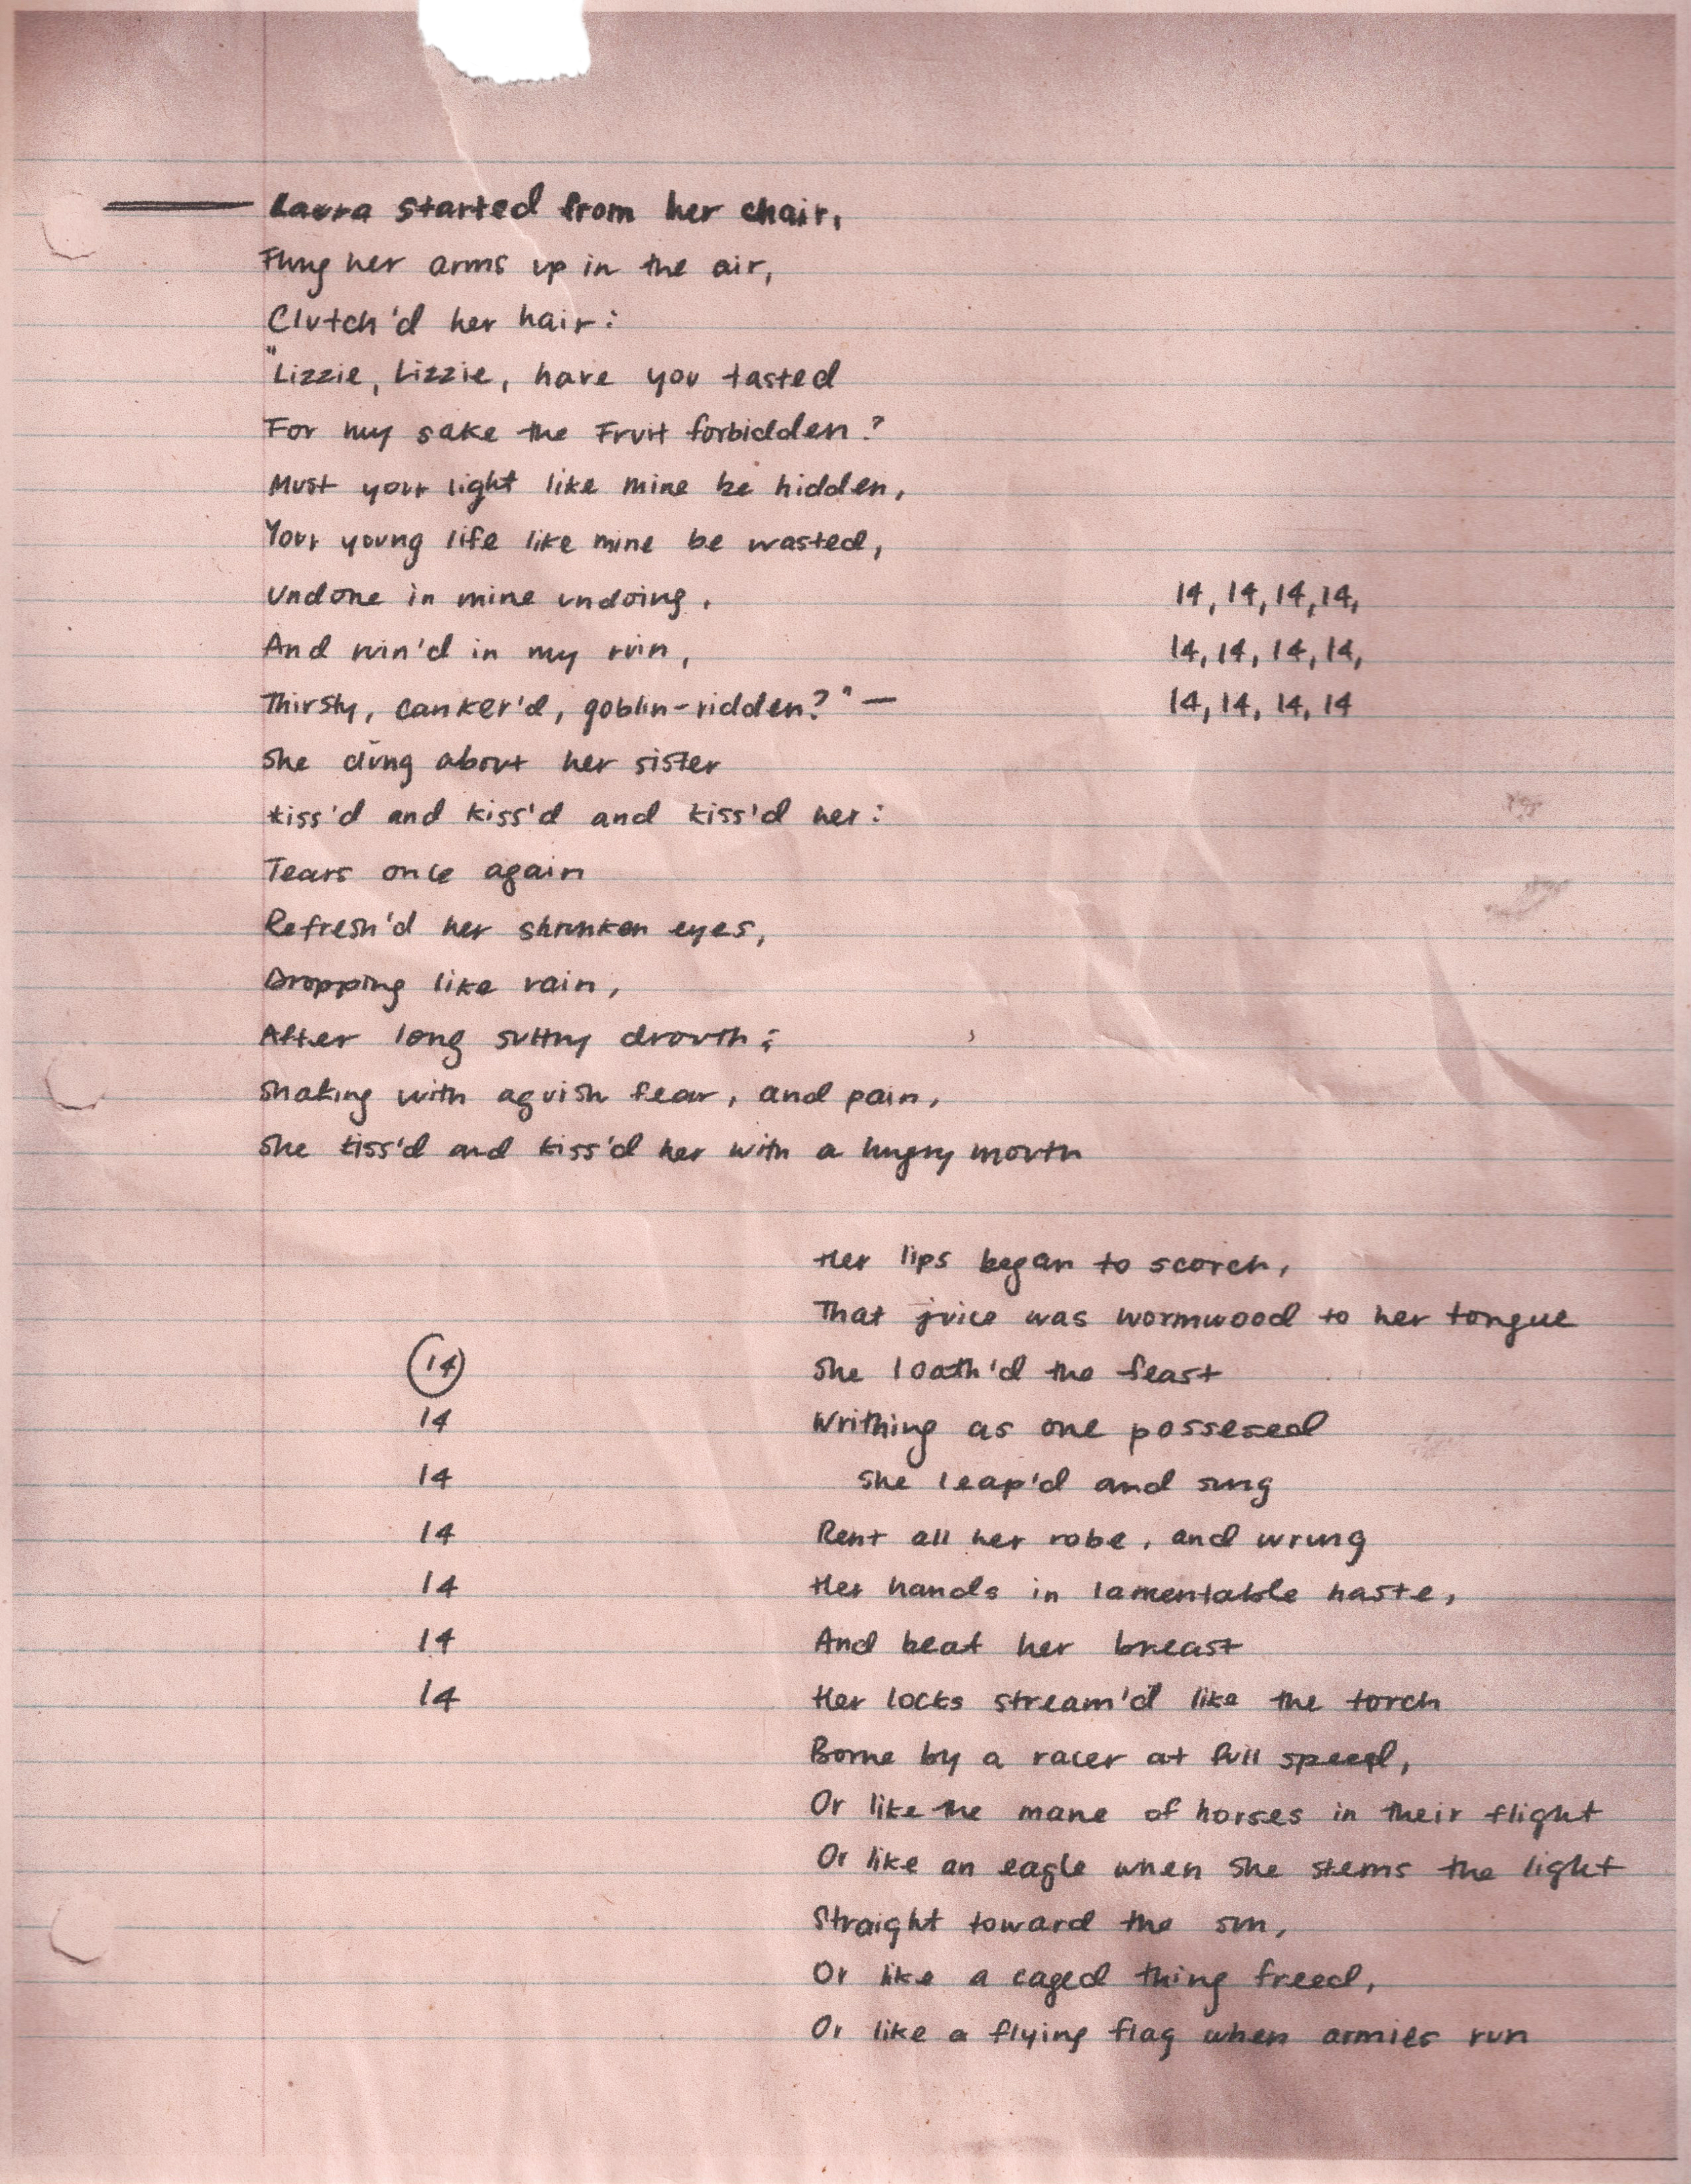 Laura started from her chair,
Flung her arms up in the air,
Clutch'd her hair:
"Lizzie, Lizzie, have you tasted
For my sake the Fruit forbidden?
Must your light like mine be hidden,
Your young life like mine be wasted,
Undone in mine undoing,
14, 14, 14, 14,
And ruin'd in my ruin,
14, 14, 14, 14,
Thirsty, canker'd, goblin-ridden?" —
14, 14, 14, 14
She clung about her sister
Kiss'd and kiss'd and kiss'd her:
Tears once again
Refresh'd her shrunken eyes,
Dropping like rain,
After long sultry drouth;
Shaking with aguish fear, and pain,
She kiss'd and kiss'd her with a hungry mouth
Her lips began to scorch,
That juice was wormwood to her tongue
14
She loath'd the feast
14
Writhing as one possesed
14
She leap'd and sung
14
Rent all her robe, and wrung
14
Her hands in lamentable haste,
14
And beat her breast
14
Her locks stream'd like the torch
Borne by a racer at full speed,
Or like the mane of horses in their flight
Or like an eagle when she stems the light
Straight toward the sun,
Or like a caged thing freed,
Or like a flying flag when armies run